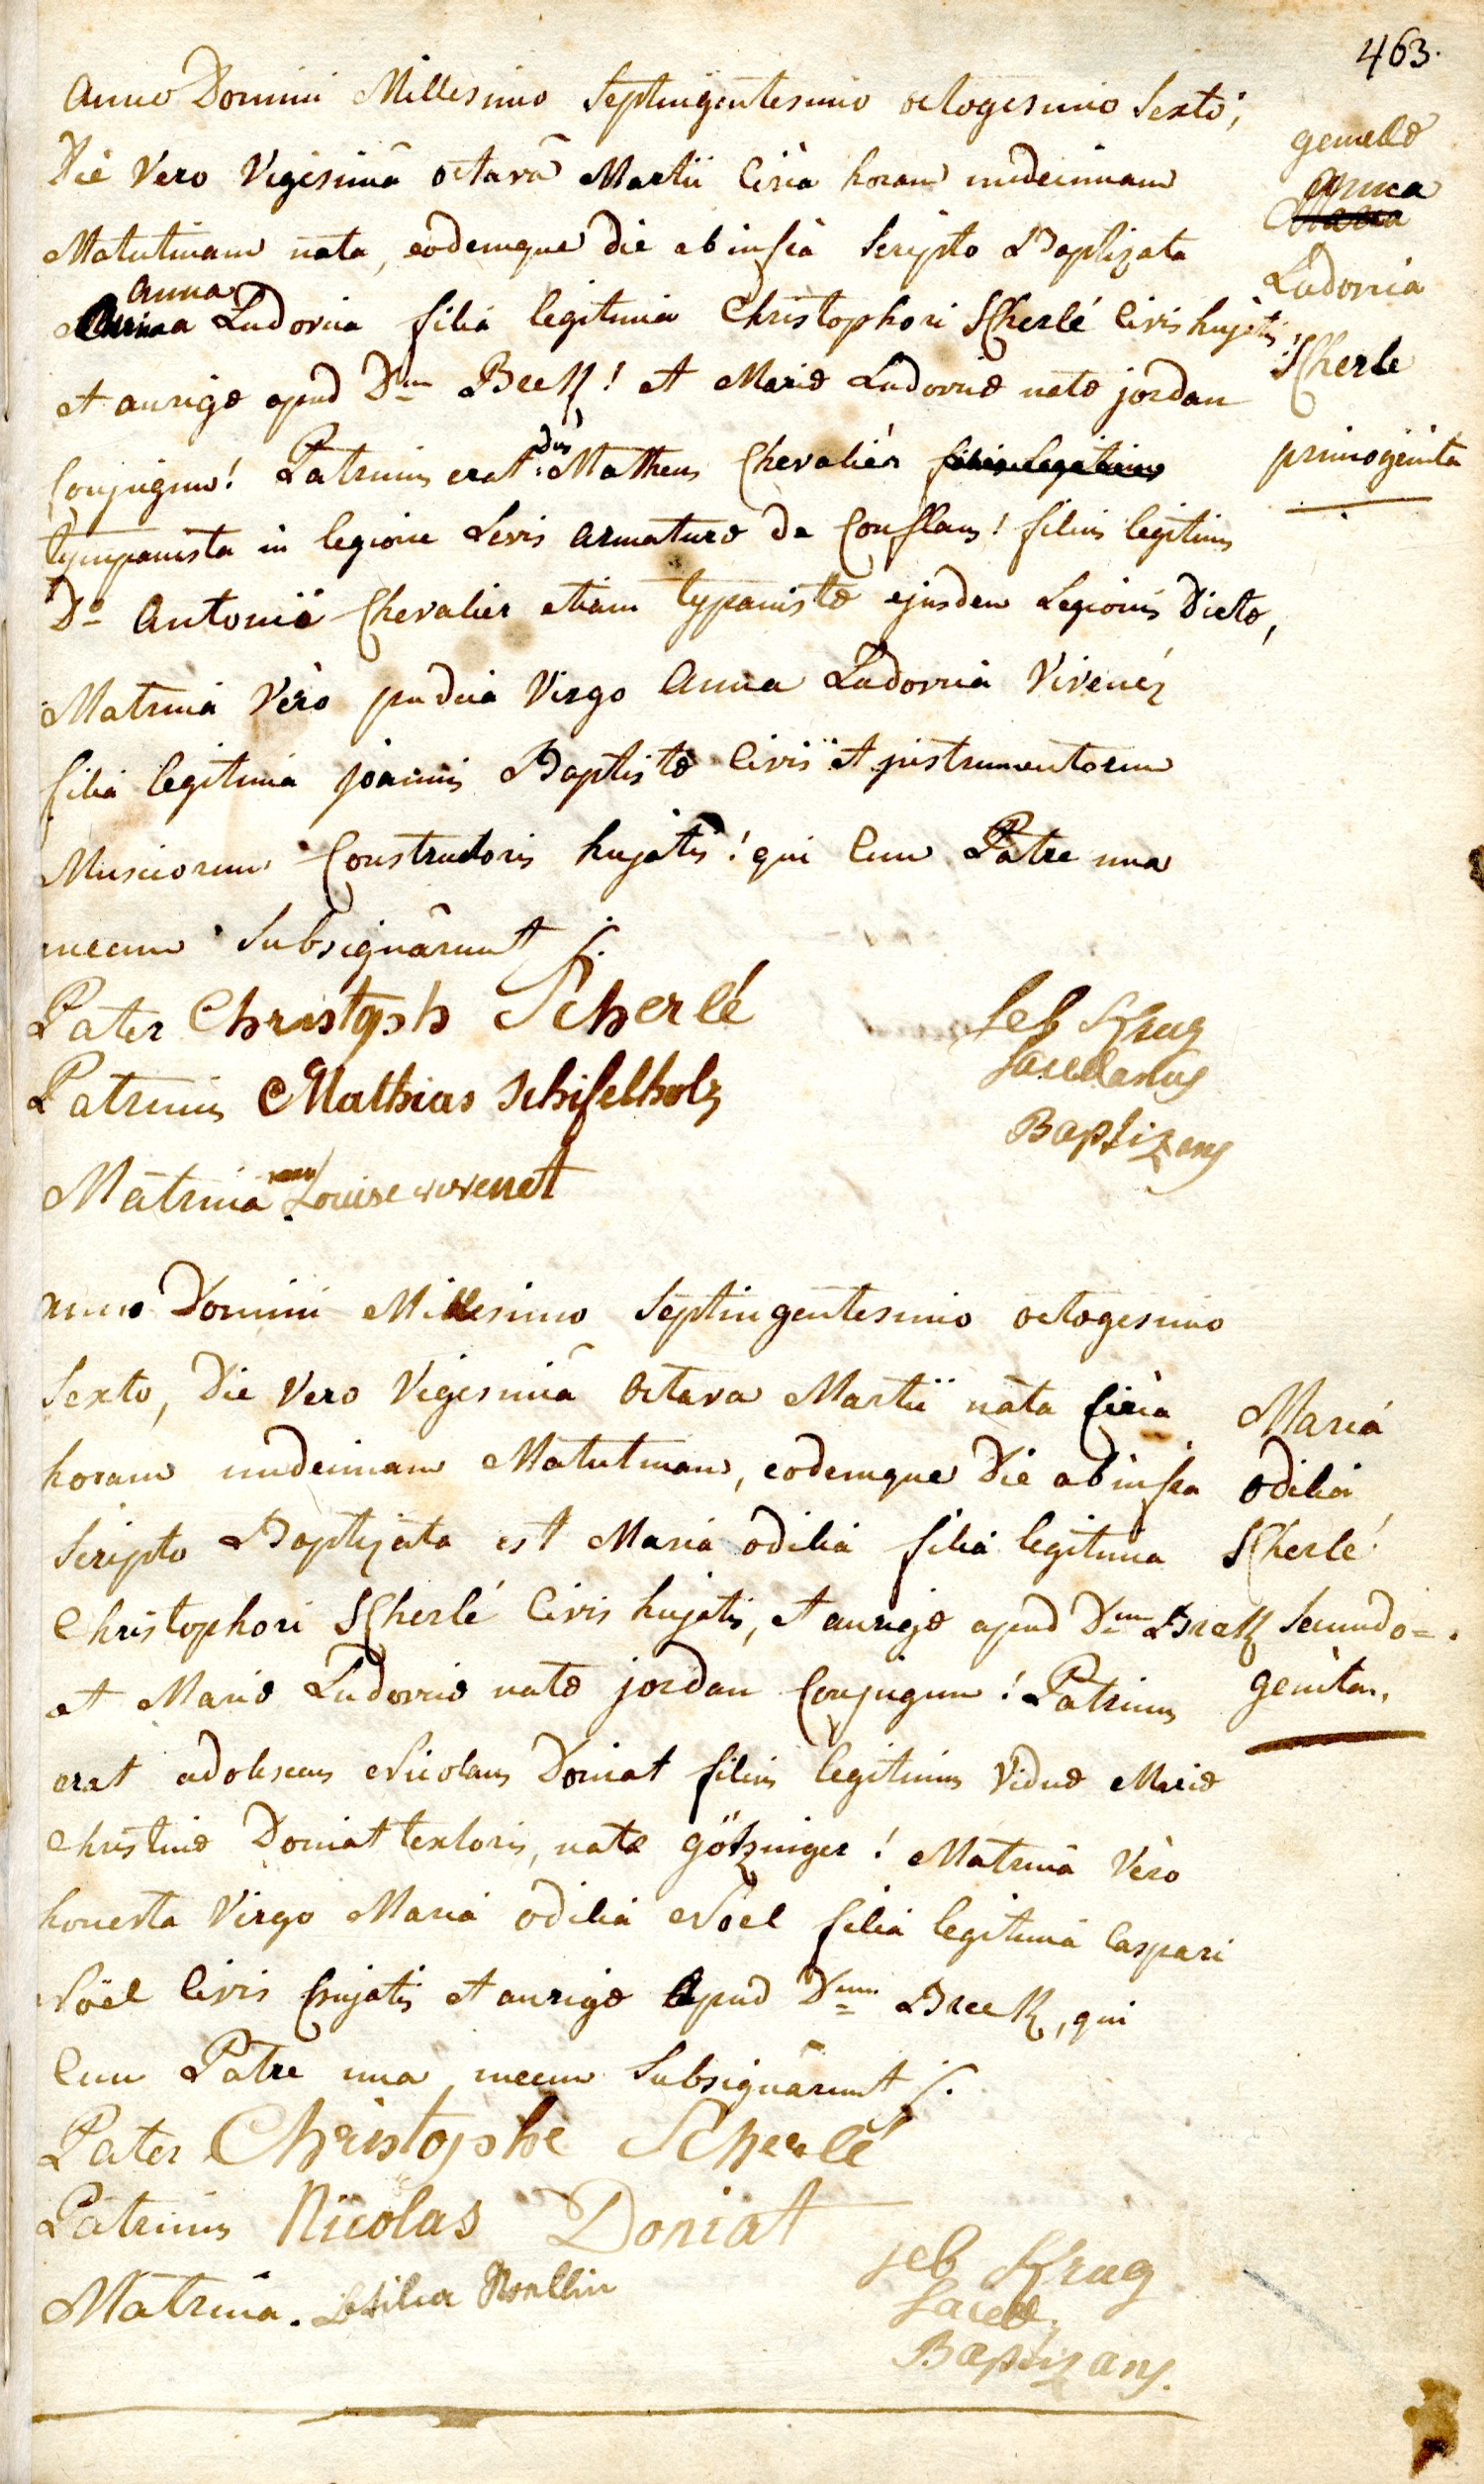 463.
Anno Domini Millesimo Septingentesimo octogesimo Sexto,
Die Vero Vigesimâ octavâ Martii Circa horam undecimam
Matutinam nata, eodemque die ab infra Scripto Baptizata
Anna
Ludovica filia legitima Christophori Scherlé Civis hujatis,
et aurigæ apud Dnum Beck! et Mariæ Ludovicæ natæ jordan
Conjugum! Patrinus erat Dnus Matheus Chevalier filius legitimus
tympanista in legione Levis Armaturæ de Conflans! filius legitimus
Di Antonii Chevalier etiam typanistæ ejusdem Legionis Dictæ,
Matrina Vero pudica Virgo Anna Ludovica Vivenez
filia legitima joannis Baptistæ Civis et jnstrumentorum
Musicorum Constructoris hujatis! qui Cum Patre una
mecum Subsignârunt ./.
Pater Christoph Scherlé
Patrinus Mathias Schifelholz
Matrina Louise vivenet
Seb Krug
Sacellanus
Baptizans
gemellæ
Anna
Maria
Ludovica
Scherle
primogenita
Anno Domini Millesimo Septingentesimo octogesimo
Sexto, Die Vero Vigesimâ Octava Martii nata Circa
horam undecimam Matutinam, eodemque Die ab infra
Scripto Baptizata est Maria odilia filia legitima
Christophori Scherlé Civis hujatis, et aurigæ apud Dnum Breck
et Mariæ Ludovicæ natæ jordan Conjugum! Patrinus
erat adolescens Nicolaus Doniat filius legitimus Viduæ Mariæ
Christinæ Doniat textoris, natæ götzinger! Matrina Vero
honesta Virgo Maria odilia Noel filia legitima Caspari
Nöel Civis hujatis et aurigæ Apud Dnum Breck, qui
Cum Patre una mecum Subsignârunt ./.
Pater Christophe Scherlé
Patrinus Nicolas Doniat
Matrina.
Seb Krug
Sacell.
Baptizans.
Maria
odilia
Scherlé
Secundo=
genita.